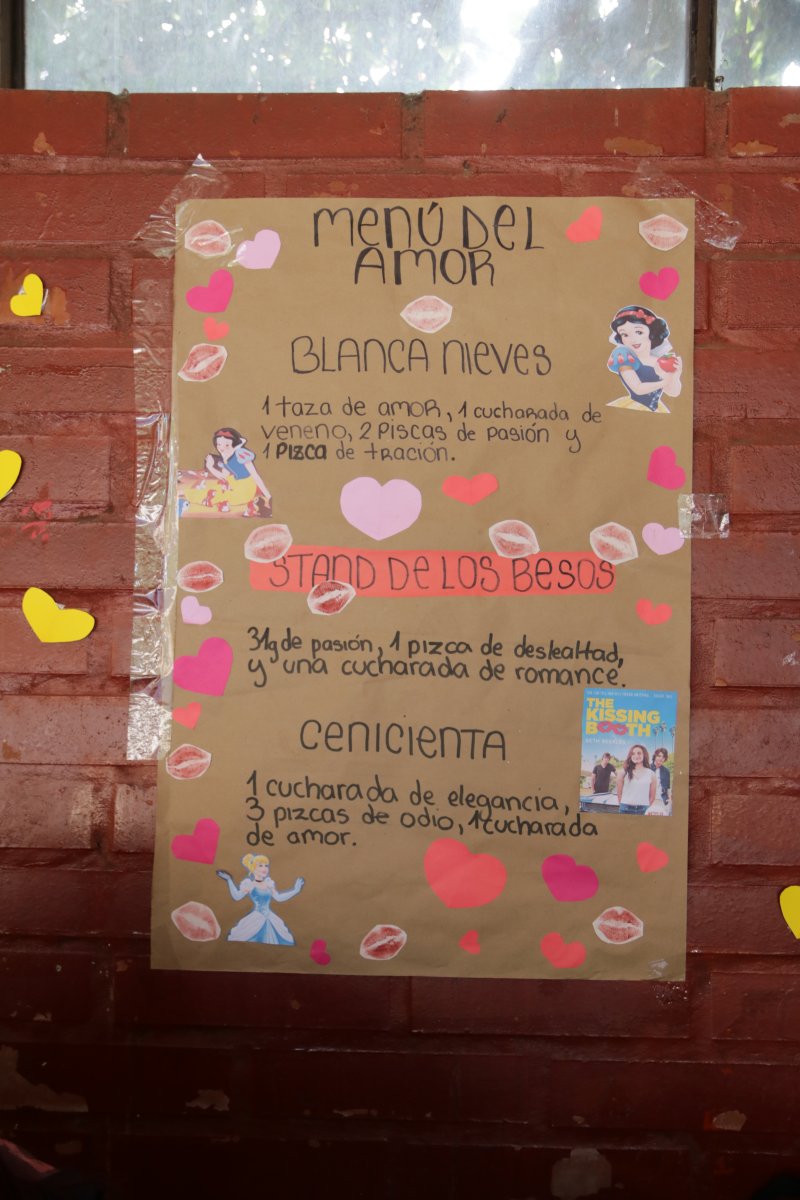 MENÚ DEL
AMOR
BLANCA NIEVES
1 taza de amor, 1 cucharada de
veneno, 2 Piscas de pasión y
1 Pizca de tración.
STAND DE LOS BESOS
31g de pasión, 1 pizca de deslealtad,
y una cucharada de romance.
THE
KISSING
BOOTH
CENICIENTA
1 cucharada de elegancia,
3 pizcas de odio, 1 cucharada
de amor.